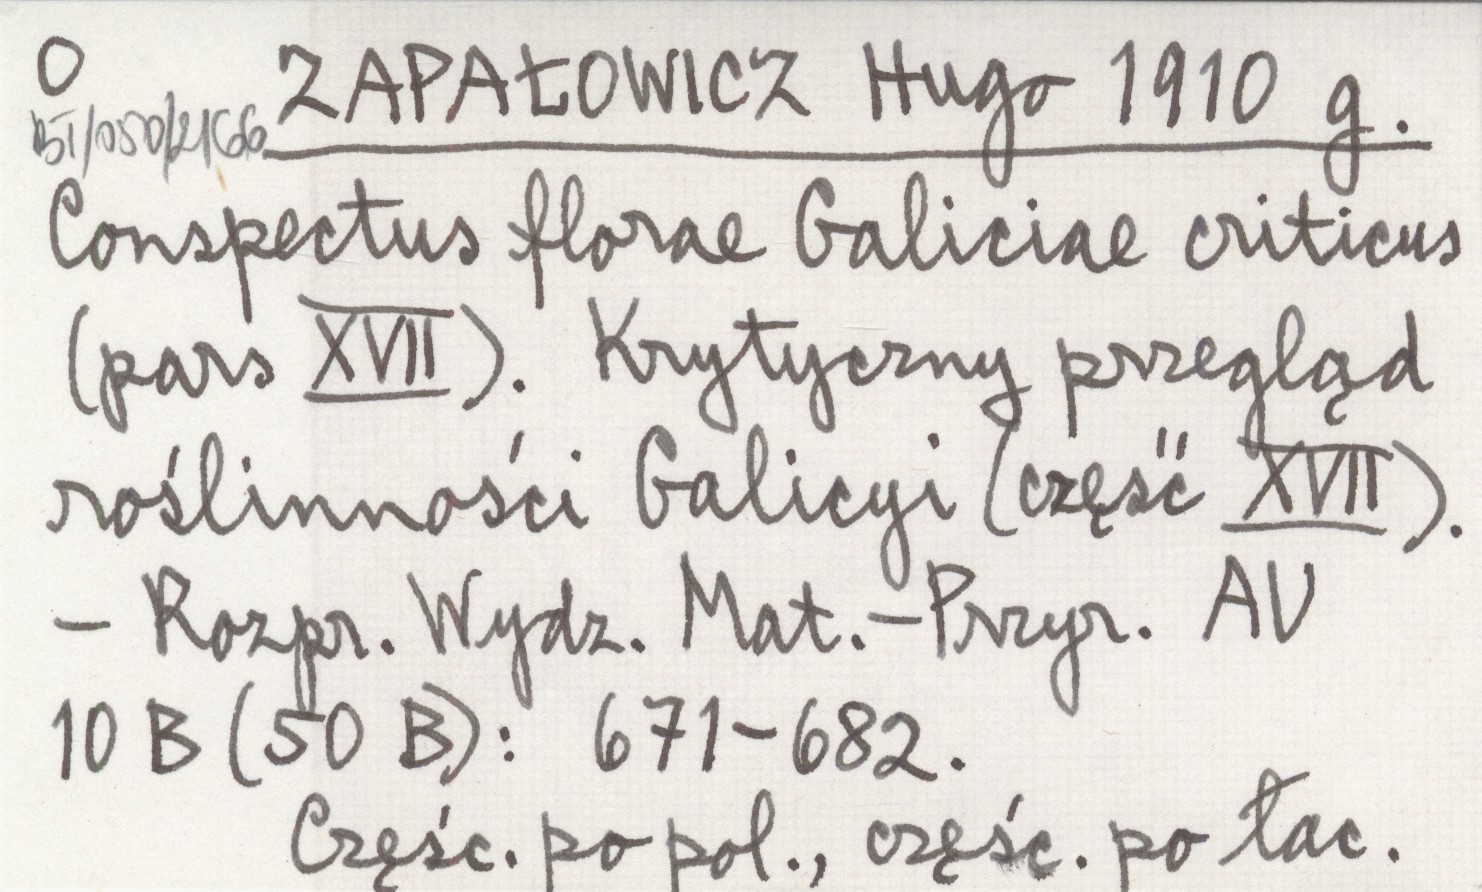 O ZAPAŁOWICZ Hugo 1910 g.
BI/050/2166
Conspectus florae Galiciae criticus
(pars XVII). Krytyczny przegląd
roślinności Galicyi (część XVII).
– Rozpr. Wydz. Mat.–Przyr. AU
10 B (50 B): 671–682.
Częśc. po pol., częśc. po łac.